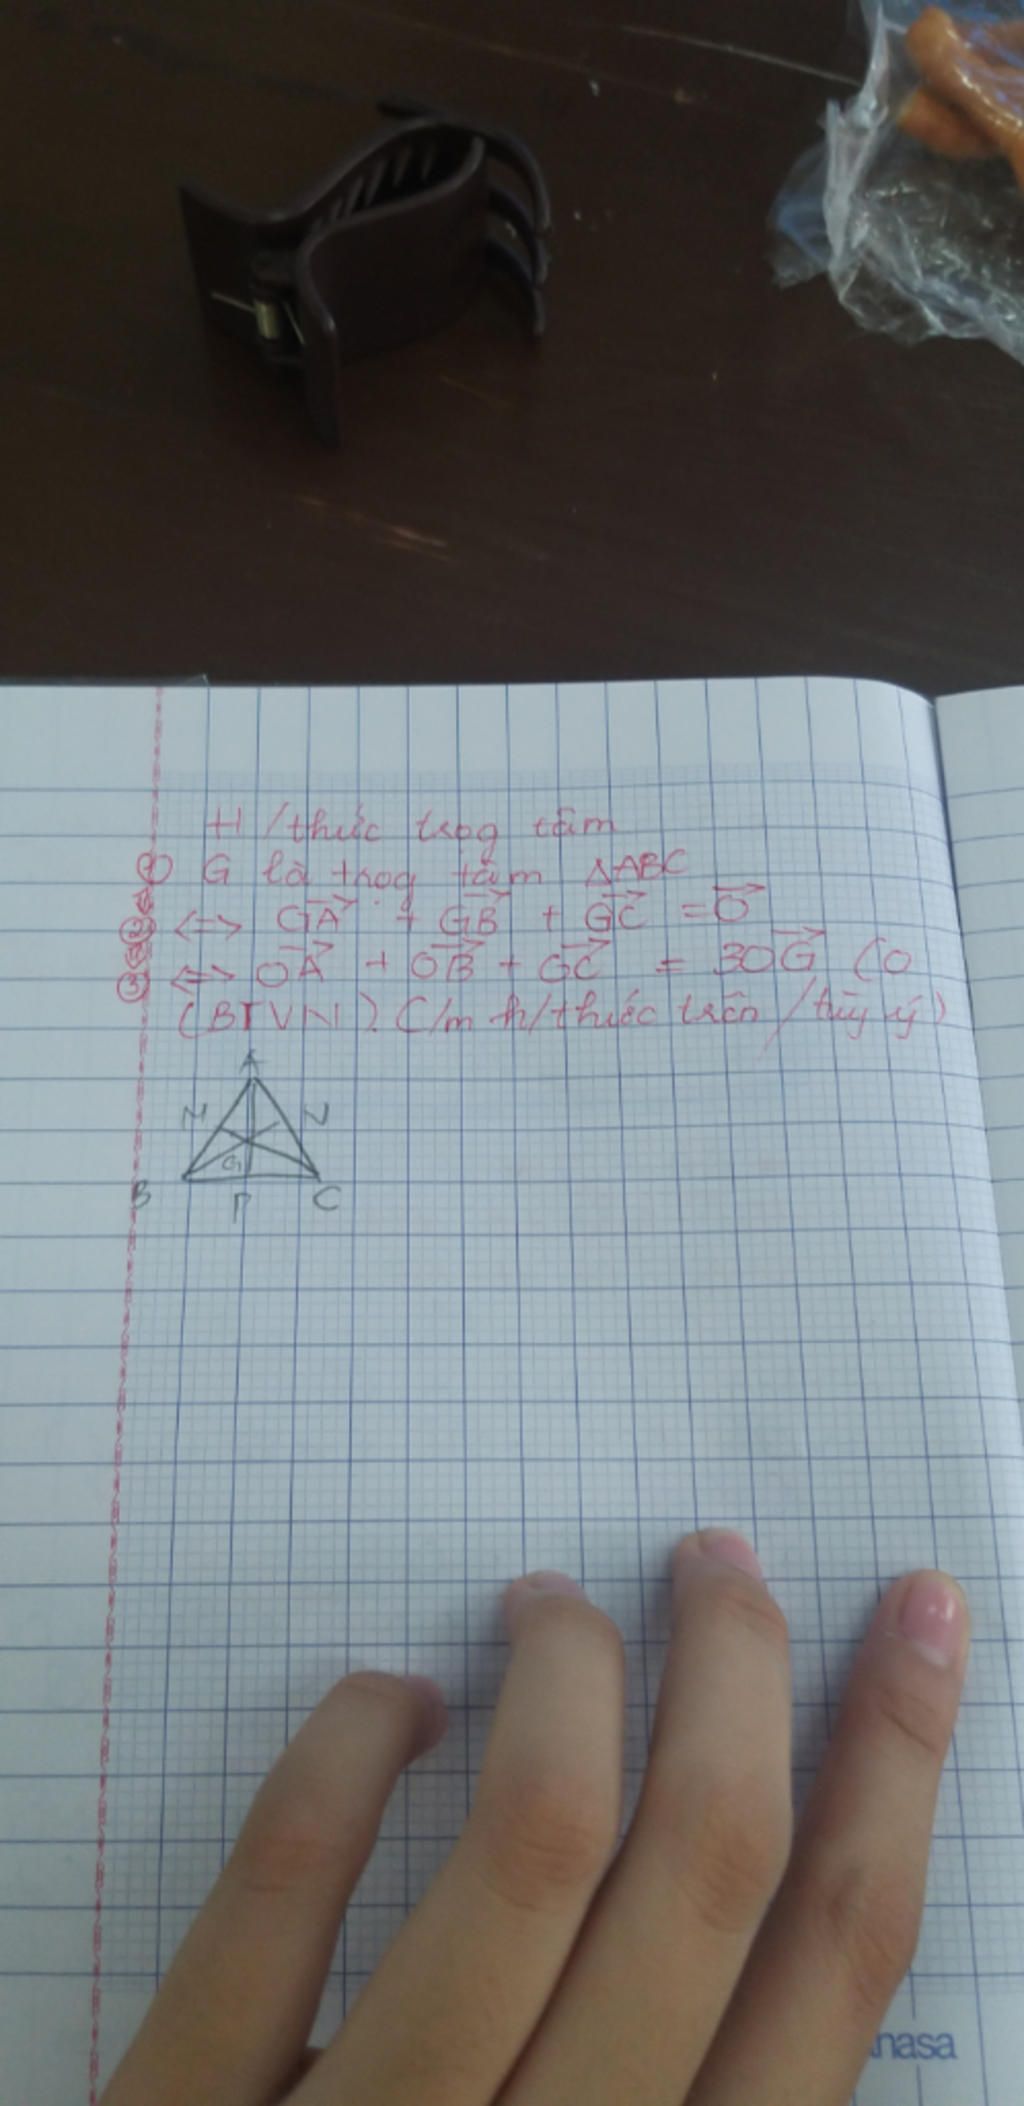 H/thức trọg tâm
① G là trọg tâm ΔABC
② <=> GA + GB + GC = 0
③ <=> OA + OB + GC = 3OG (O
(BTVN). C/m h/thức trên /tùy ý)
A
M N
G
B P C
nasa